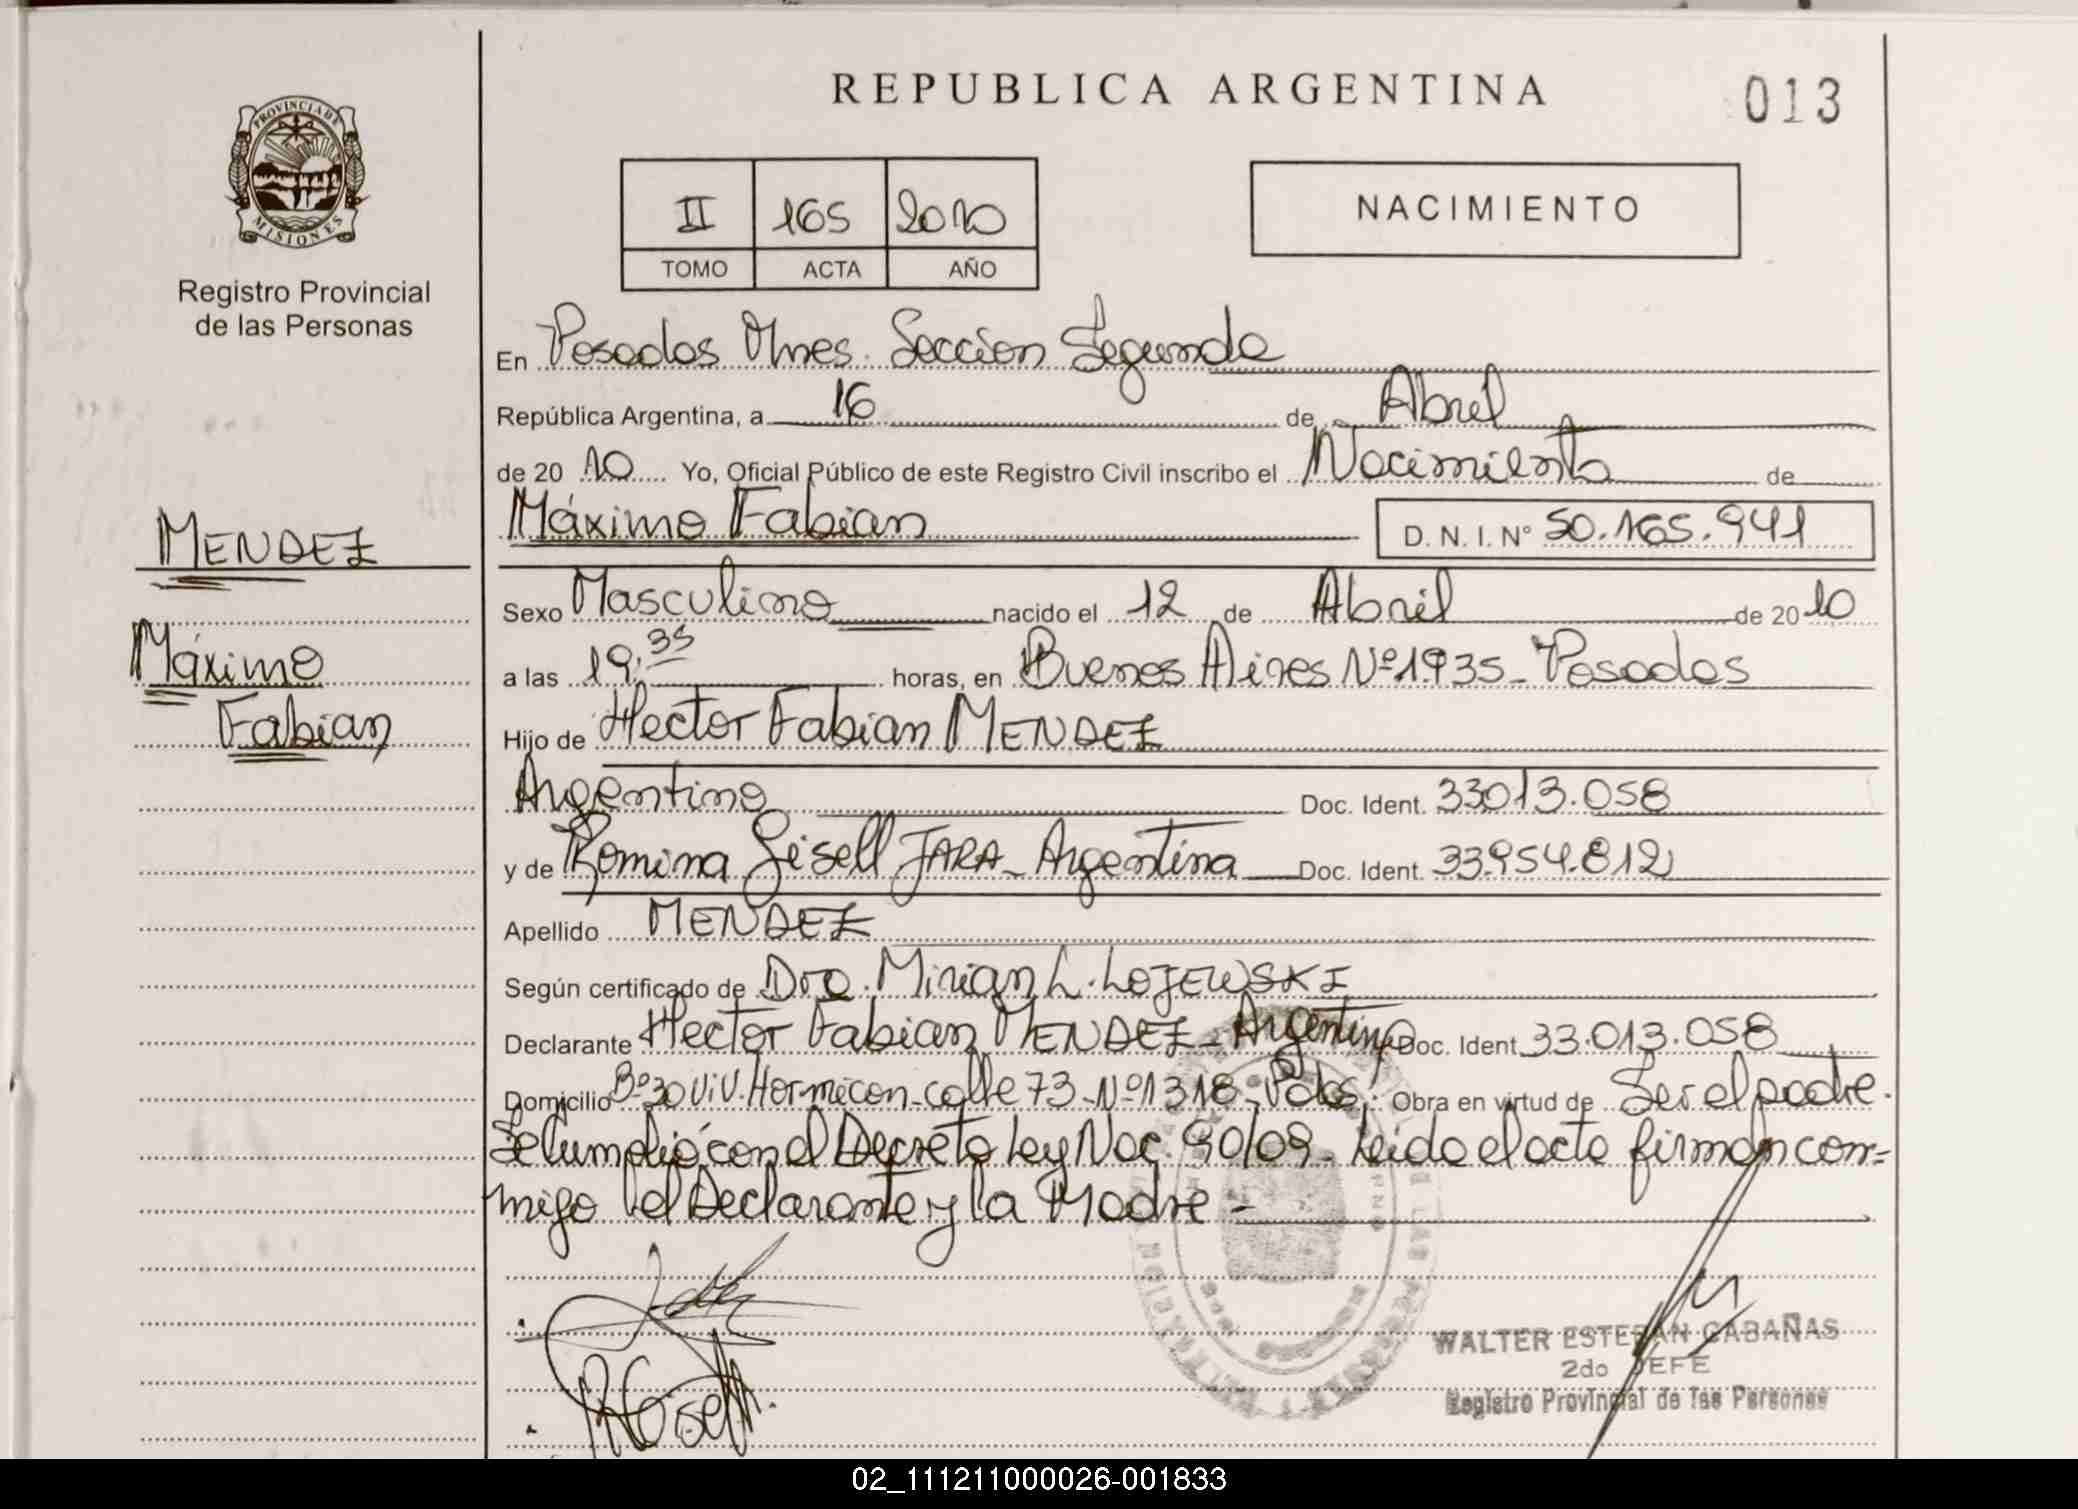 REPUBLICA ARGENTINA
013
PROVINCIA DE
MISIONES
Registro Provincial
de las Personas
II 165 2010
TOMO ACTA AÑO
NACIMIENTO
En Posadas Mnes. Seccion Segunda
República Argentina, a 16 de Abril
de 20 10 Yo, Oficial Público de este Registro Civil inscribo el Nacimiento de
MENDEZ
Máximo
Fabian
Máximo Fabian D. N. I. N° 50.165.941
Sexo Masculino nacido el 12 de Abril de 20 10
a las 19:35 horas, en Buenos Aires Nº 1935 - Posadas
Hijo de Hector Fabian MENDEZ
Argentino Doc. Ident. 33013.058
y de Romina Gisell JARA - Argentina Doc. Ident. 33.954.812
Apellido MENDEZ
Según certificado de Dra. Mirian L. LOJEWSKI
Declarante Hector Fabian MENDEZ - Argentino Doc. Ident. 33.013.058
Domicilio Bº 30 Viv. Hormicon - calle 73 - Nº 1318 - Pdas. Obra en virtud de Ser el padre.
Se Cumplió con el Decreto Ley Nac. 90/09 - Leida el acta firman con=
migo el Declarante y la Madre -
WALTER ESTEBAN CABAÑAS
2do JEFE
Registro Provincial de las Personas
02_111211000026-001833